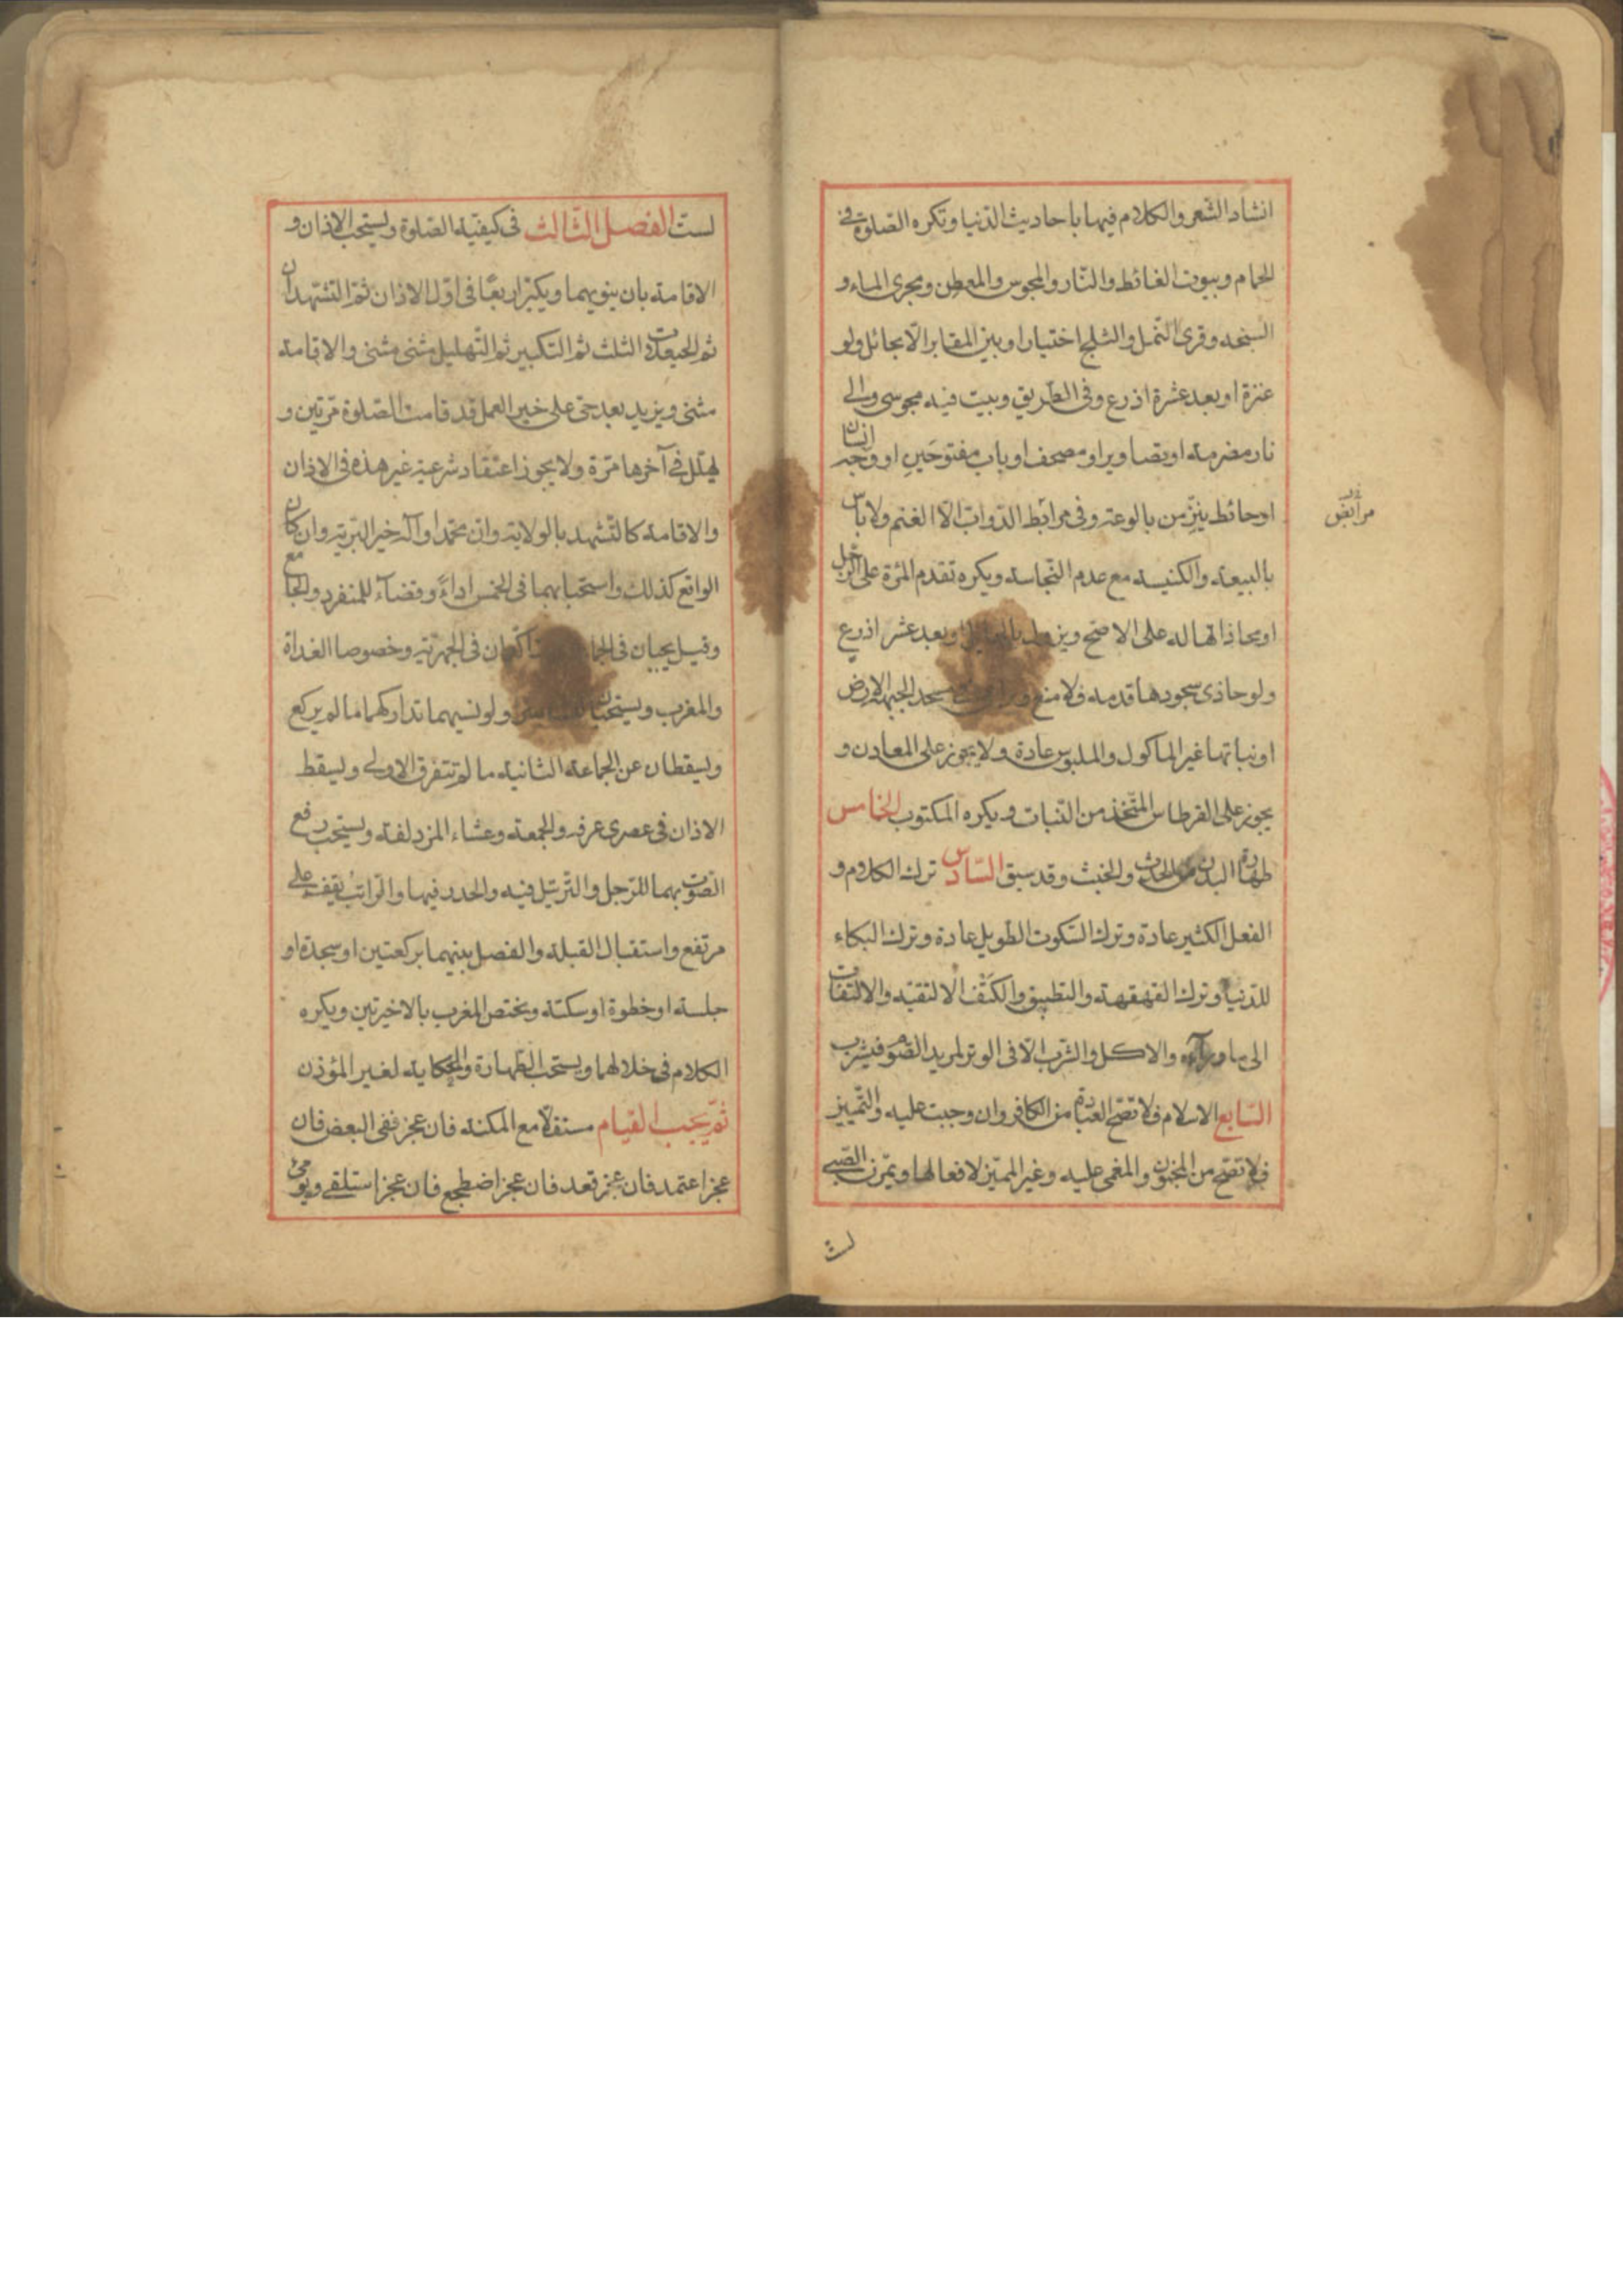 انشاد الشعر والكلام فيها باحاديث الدنيا وتكره الصلوة في
الحمام وبيوت الغائط والنار والمجوس والمعطن ومجرى الماء و
السبخه وقرى النمل والثلج اختيارا وبين المقابر الا بحائل ولو
عنزة او بعد عشرة اذرع وفى الطريق وبيت فيه مجوسى والى
نار مضرمة او تصاوير او مصحف او باب مفتوحين او وجه انسان
او حائط ينز من بالوعته وفى مرابط الدواب الا الغنم ولا باس
مرابض
بالبيعة والكنيسه مع عدم النجاسه ويكره تقدم المرة على الرجل
او محاذاتها له على الاصح ويزول بالحائل او بعد عشر اذرع
ولو حاذى سجودها قدمه فلا منع مسجد الجبهة الارض
او نباتها غير الماكول والملبوس عادة ولا يجوز على المعادن و
يجوز على القرطاس المتخذ من النبات ويكره المكتوب الخامس
طهارة البدن من الحدث والخبث وقد سبق السادس ترك الكلام و
الفعل الكثير عادة وترك السكوت الطويل عادة وترك البكاء
للدنيا وترك القهقهة والتطبيق والكتف الا لتقيه والالتفات
الى ما وراءه والاكل والشرب الا فى الوتر لمريد الصوم فيشرب
السابع الاسلام فلا تصح العبادة من الكافر وان وجبت عليه والتمييز
فلا تصح من المجنون والمغمى عليه وغير المميز لافعالها ويمرن الصبى
لست
لست الفصل الثالث فى كيفية الصلوة ويستحب الاذان و
الاقامة بان ينويهما ويكبر اربعا فى اول الاذان ثم التشهدان
ثم الحيعلات الثلث ثم التكبير ثم التهليل مثنى مثنى والاقامة
مثنى ويزيد بعد حى على خير العمل قد قامت الصلوة مرتين و
يهلل فى آخرها مرة ولا يجوز اعتقاد شرعية غير هذه فى الاذان
والاقامة كالتشهد بالولاية وان محمدا وآله خير البرية وان كان
الواقع كذلك واستحبابهما فى الخمس اداء وقضاء للمنفرد والجامع
وقيل يجبان فى فى الجهرية وخصوصا الغداة
والمغرب ويستحبان ولو نسيهما تداركهما ما لم يركع
ويسقطان عن الجماعة الثانية ما لم تتفرق الاولى ويسقط
الاذان فى عصرى عرفه والجمعة وعشاء المزدلفة ويستحب رفع
الصوت بهما للرجل والترتيل فيه والحدر فيها والراتب يقف على
مرتفع واستقبال القبلة والفصل بينهما بركعتين او سجدة او
جلسة او خطوة او سكتة ويختص المغرب بالاخيرتين ويكره
الكلام فى خلالهما ويستحب الطهارة والحكاية لغير المؤذن
ثم يجب القيام مستقلا مع المكنة فان عجز ففى البعض فان
عجز اعتمد فان عجز قعد فان عجز اضطجع فان عجز استلقى ويومى